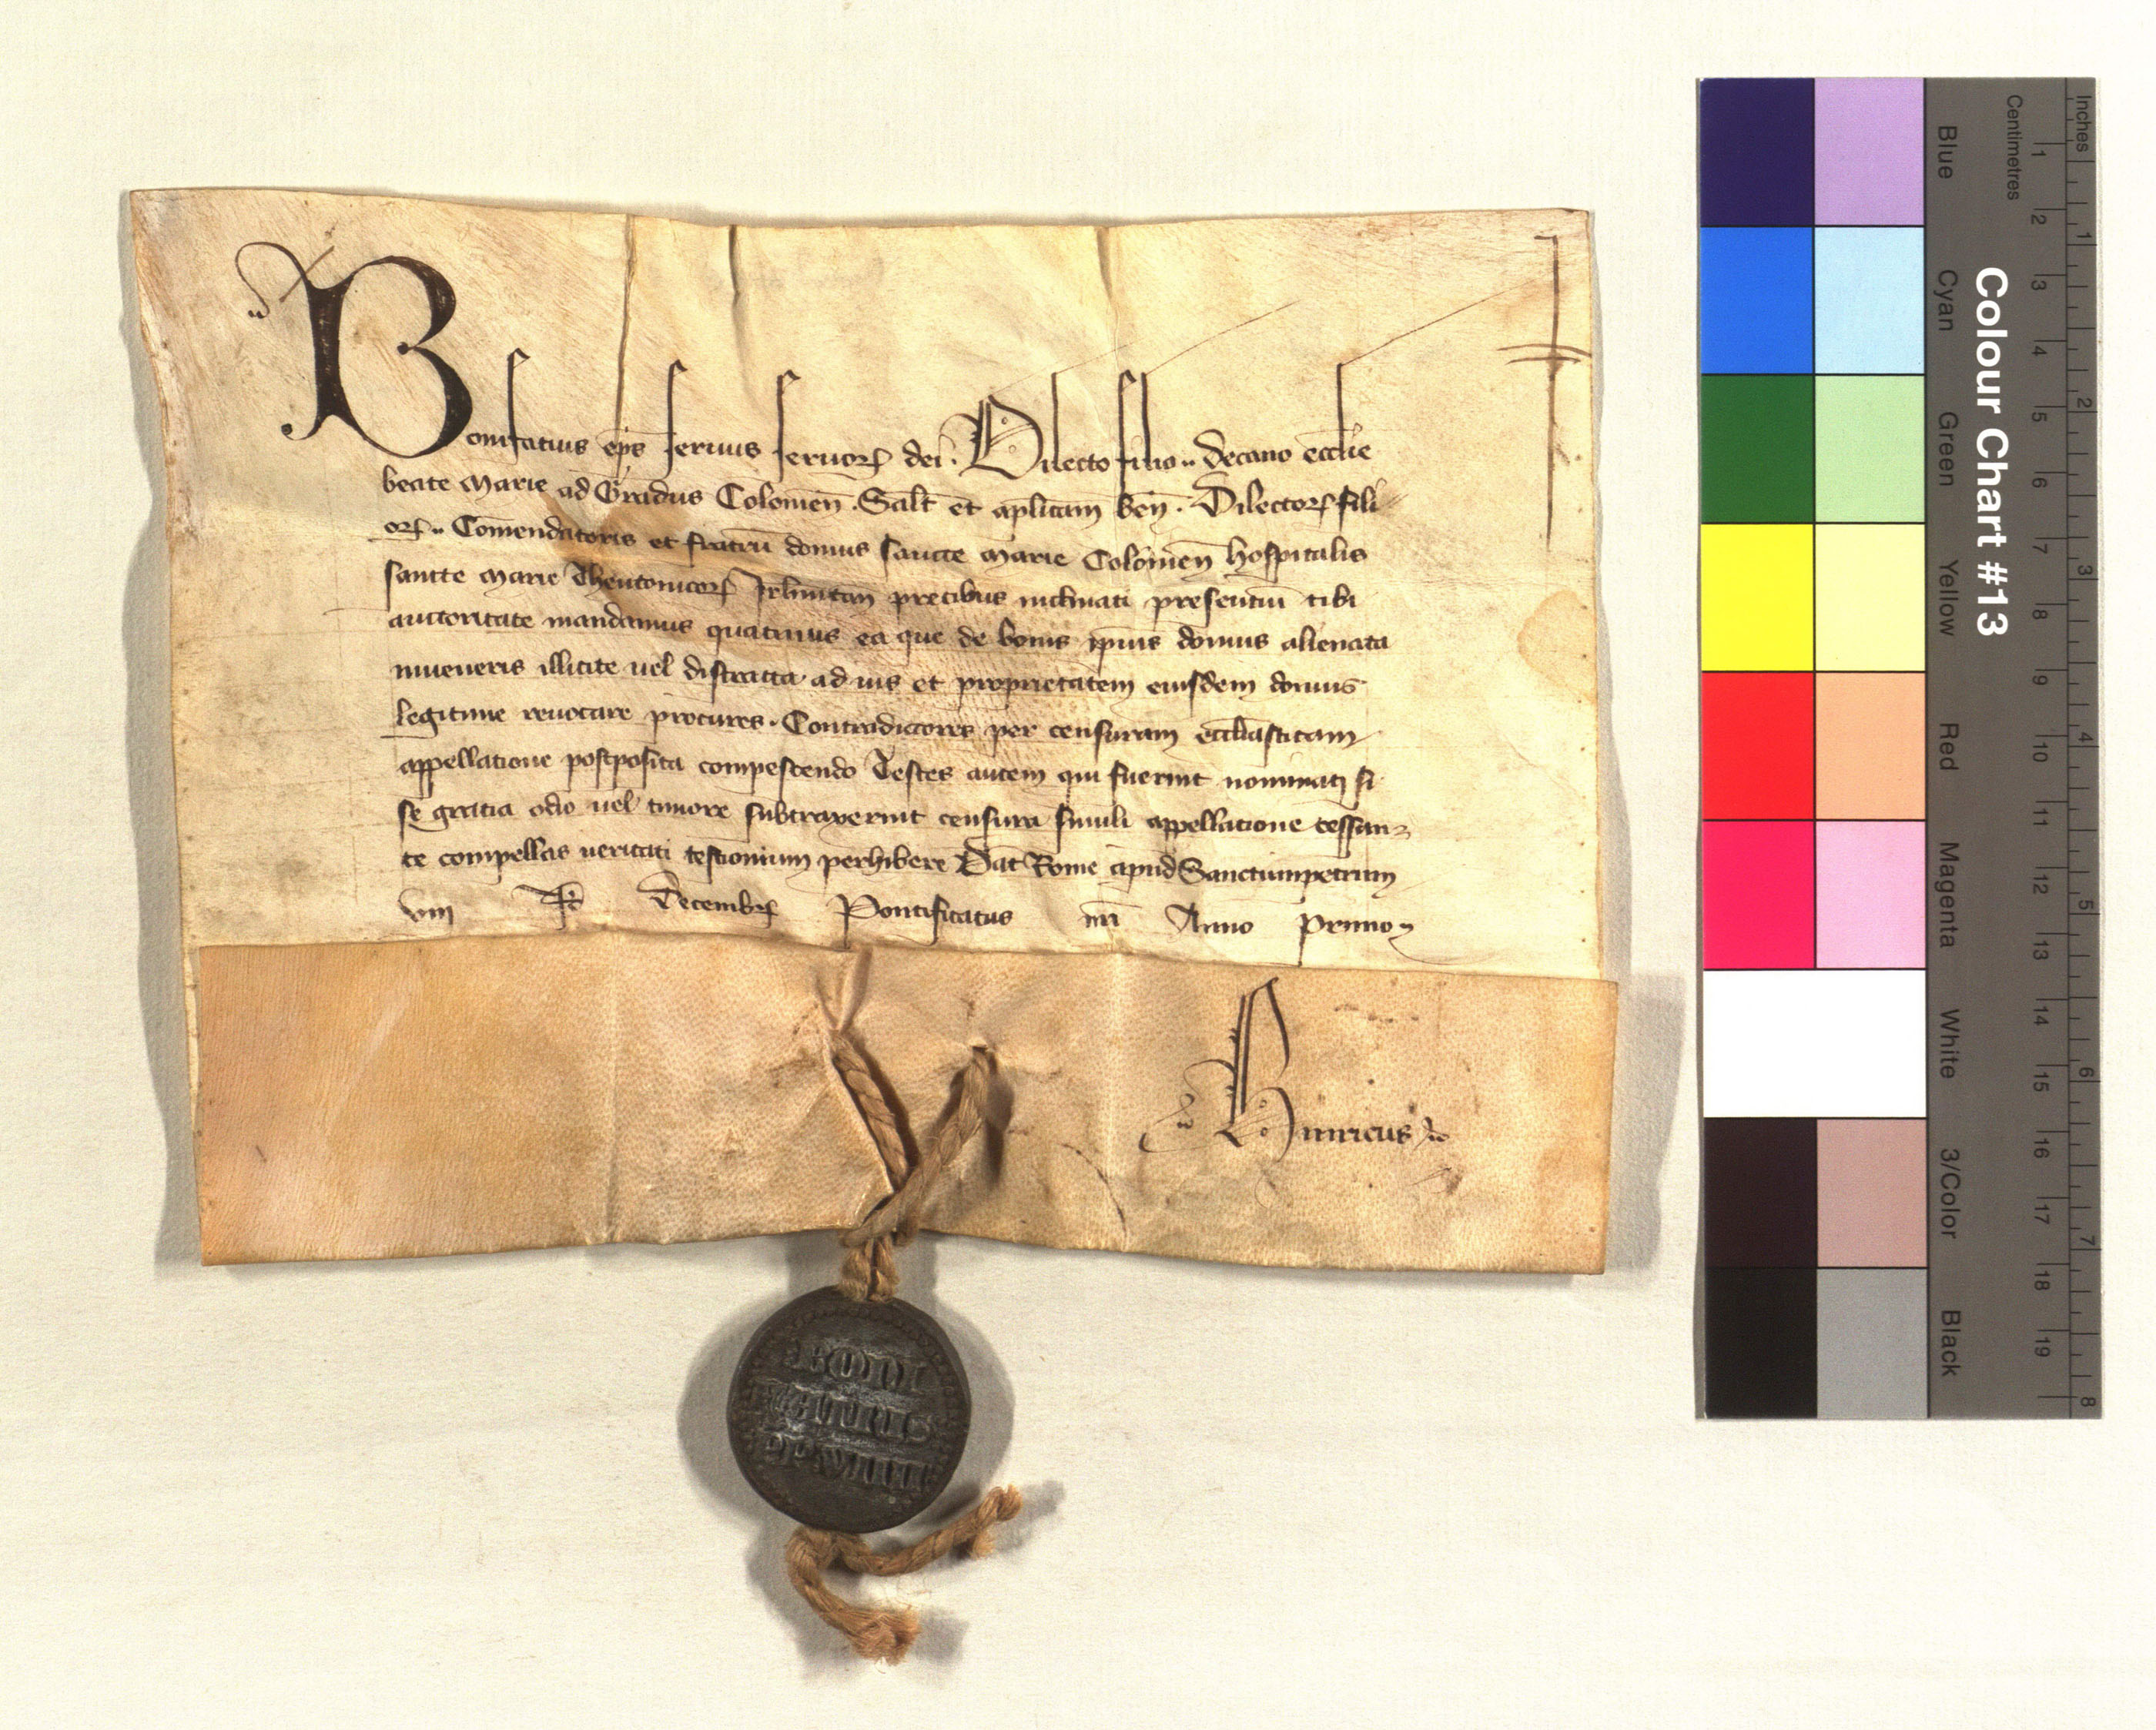 Bonifatius ep̄s seruus seruoꝝ dei. Dilecto filio .. decano ecclīe
beate Marie ad Gradus Colonien̄. Salt̄ et aplīcam ben̄. Dilectoꝝ fili
oꝝ .. Comendatoris et fratrū domus sancte Marie Colonien̄ hospitalis
sancte Marie Theutonicoꝝ Jrlimitan̄ precibus inclinati presentiū tibi
auctoritate mandamus quatinus ea que de bonis ip̄ius domus alienata
inueneris illicite uel distracta ad ius et proprietatem eiusdem domus
legitime reuocare procures. Contradictores per censuram eccl̄iasticam
appellatione postposita compescendo Testes autem qui fuerint nominati si
se gratia odio uel timore subtraxerint censura simili appellatione cessan
te compellas ueritati testimonium perhibere Dat̄ Rome apud Sanctumpetrum
viii kl̄ Decembꝝ Pontificatus nr̄i Anno Primo
Hinricus
BONI
FATIUS
PP VIIII
Colour Chart #13
Blue
Cyan
Green
Yellow
Red
Magenta
White
3/Color
Black
Centimetres
1 2 3 4 5 6 7 8 9 10 11 12 13 14 15 16 17 18 19
Inches
1 2 3 4 5 6 7 8